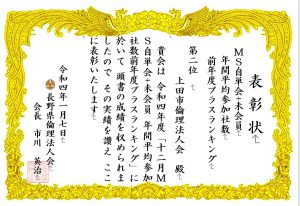 表彰状
MS自単会＋未会員
年間平均参加社数
前年度プラスランキング
第二位
上田市倫理法人会 殿
貴会は 令和四年度「十二月M
S自単会＋未会員 年間平均参加
社数前年度プラスランキング」に
於いて 頭書の成績を収められま
したので その実績を讃え ここ
に表彰いたします
令和四年一月七日
長野県倫理法人会
会長 市川 英治